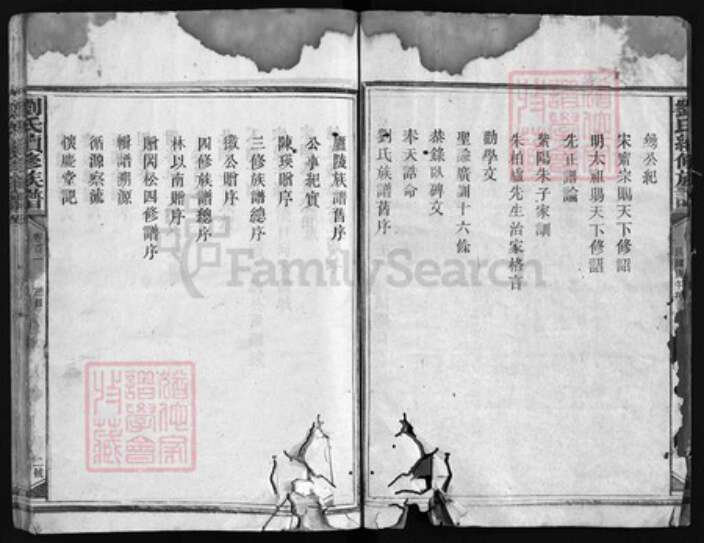 總公紀
宋甯宗賜天下修詔
明太祖賜天下修譜詔
先正譜論
紫陽朱子家訓
朱柏廬先生治家格言
勸學文
聖諭廣訓十六條
恭錄臥碑文
奉天誥命
劉氏族譜舊序
廬陵族譜舊序
公事紀實
陳瑛贈序
三修族譜總序
公贈序
四修族譜總序
林以南贈序
贈閃松四修譜序
輯譜溯源
循源察流
慶堂記
劉氏續修族譜
卷首一
FamilySearch
譜學會
特藏